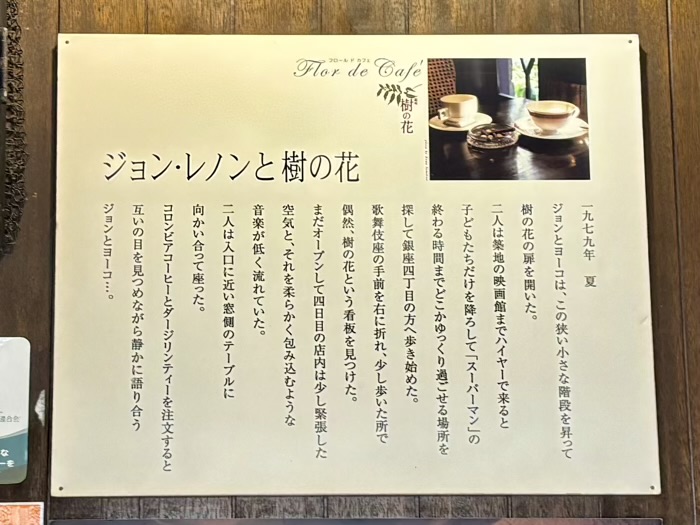 フロール デ カフェ
Flor de Café
樹の花
ジョン・レノンと樹の花
一九七九年　夏
ジョンとヨーコは、この狭い小さな階段を昇って
樹の花の扉を開いた。
二人は築地の映画館までハイヤーで来ると
子どもたちだけを降ろして「スーパーマン」の
終わる時間までどこかゆっくり過ごせる場所を
探して銀座四丁目の方へ歩き始めた。
歌舞伎座の手前を右に折れ、少し歩いた所で
偶然、樹の花という看板を見つけた。
まだオープンして四日目の店内は少し緊張した
空気と、それを柔らかく包み込むような
音楽が低く流れていた。
二人は入口に近い窓側のテーブルに
向かい合って座った。
コロンビアコーヒーとダージリンティーを注文すると
互いの目を見つめながら静かに語り合う
ジョンとヨーコ…。